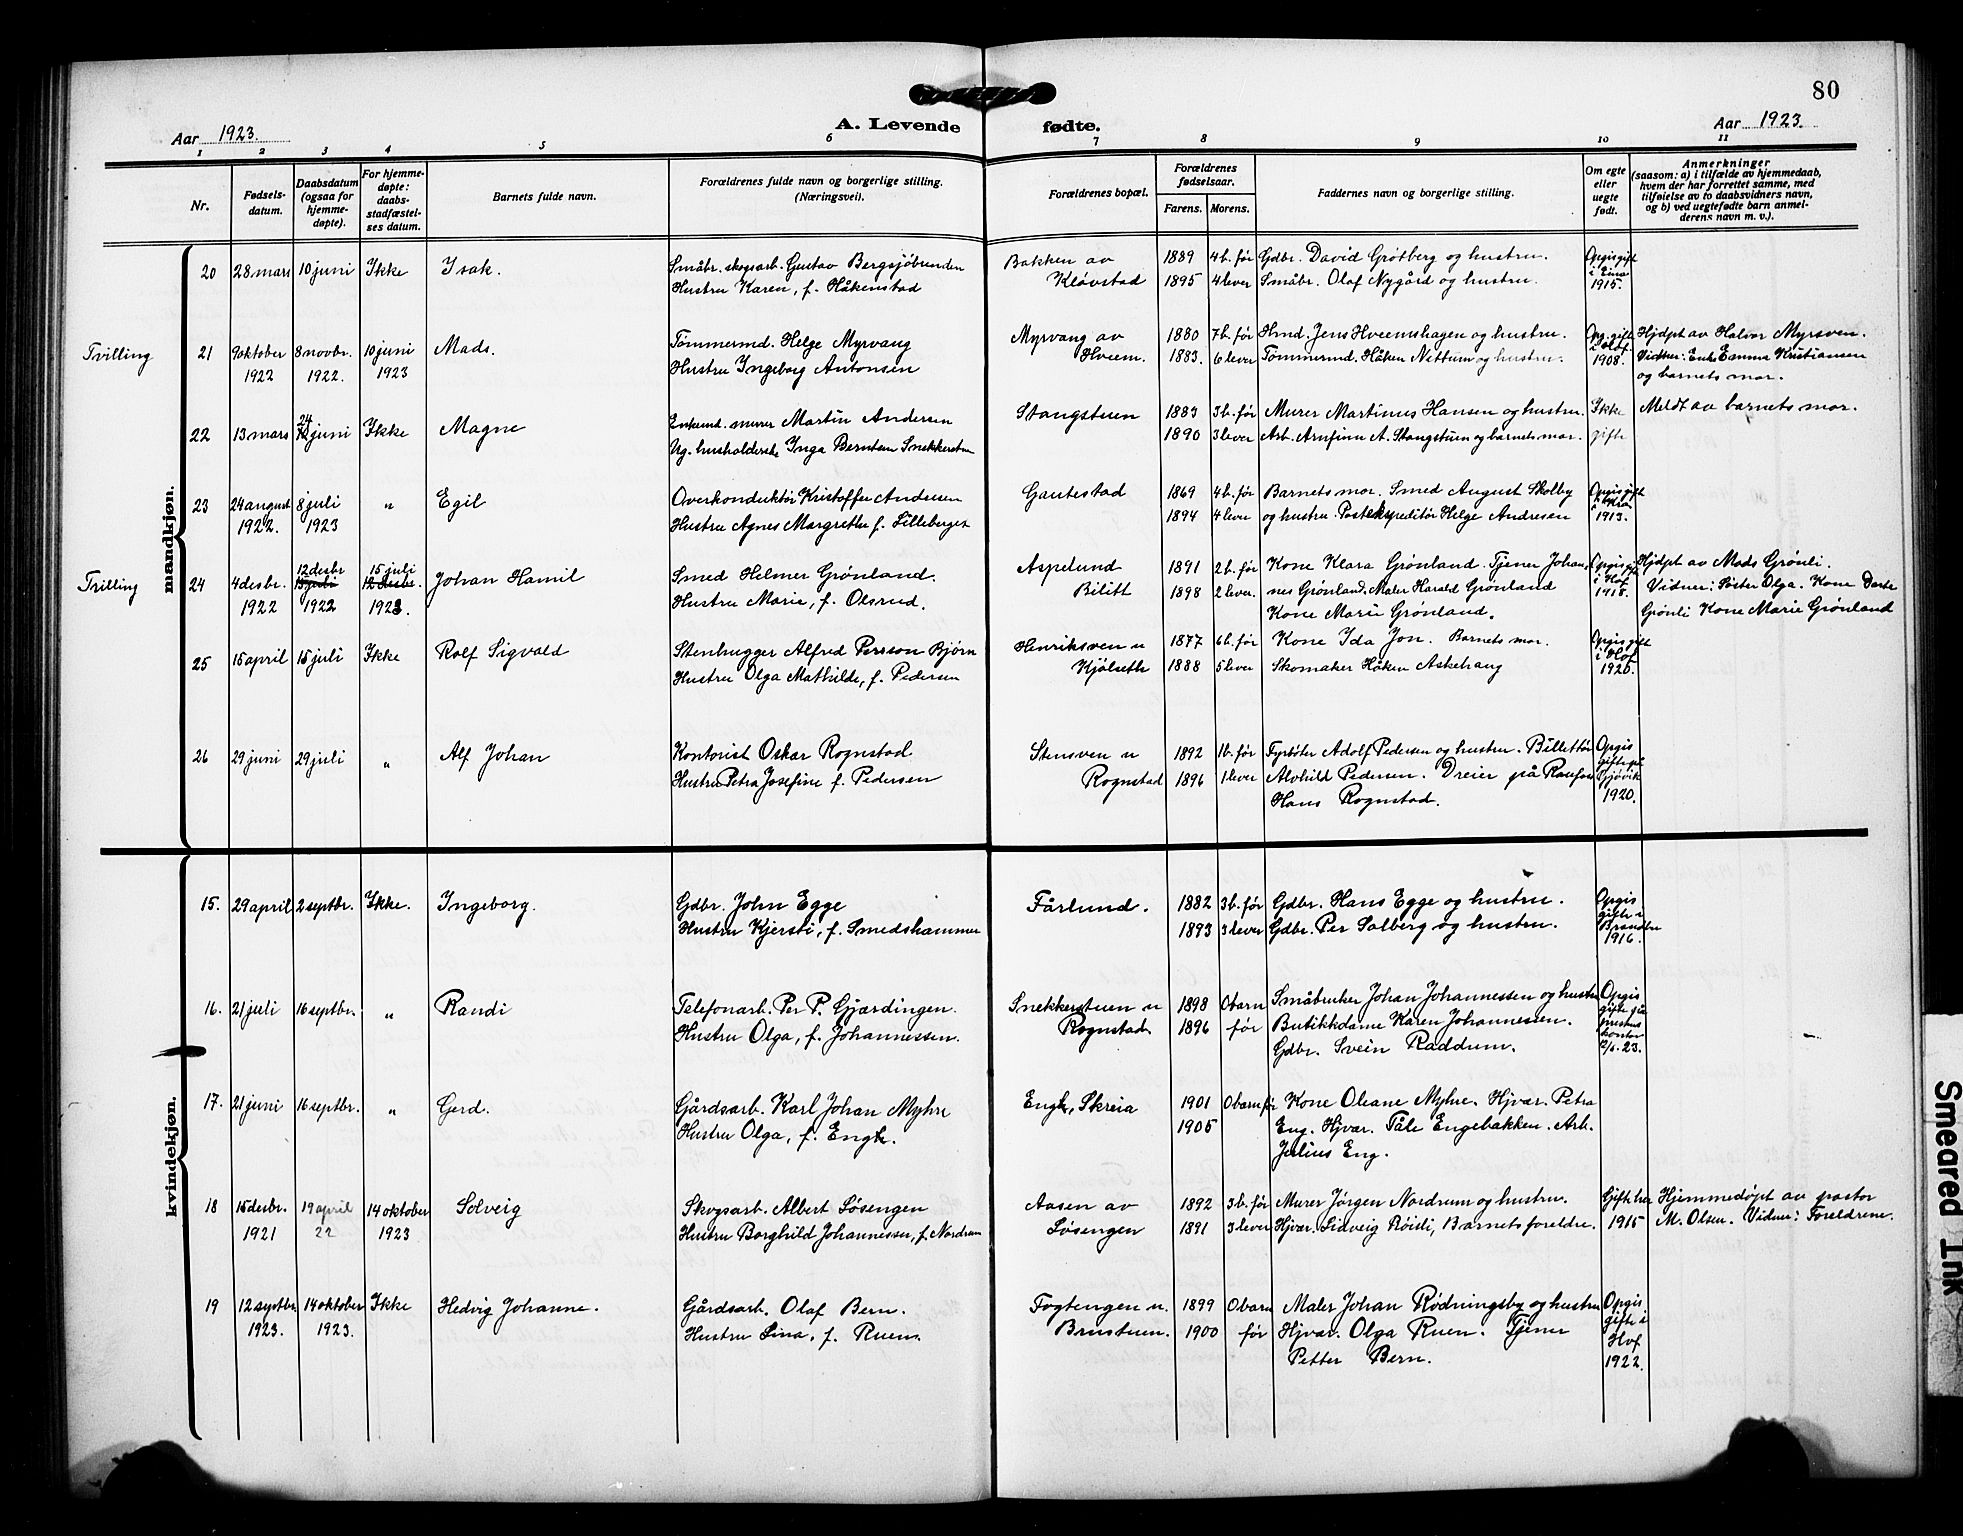 80
Aar 1923.
A. Levende fødte.
Aar 1923.
1 2 3 4 5 6 7 8 9 10 11
Nr.
Fødsels-
datum.
Daabsdatum
(ogsaa for
hjemme-
døpte).
For hjemme-
døpte:
daabs-
stadfæstel-
ses datum.
Barnets fulde navn.
Forældrenes fulde navn og borgerlige stilling.
(Næringsvei).
Forældrenes bopæl.
Forældrenes
fødselsaar.
Farens. Morens.
Faddernes navn og borgerlige stilling.
Om egte
eller
uegte
født.
Anmerkninger
(saasom: a) i tilfælde av hjemmedaab,
hvem der har forrettet samme, med
tilføielse av to daabsvidners navn,
og b) ved uegtefødte barn anmel-
derens navn m. v.).
mandkjøn.
20 28 mars 10 juni Ikke Isak. Småbr. skogsarb. Gustav Bergsjöbunden Bakken av 1889 4 b. før Gdbr. David Grötberg og hustru. Opgis gift
Hustru Karen, f. Håkenstad Kløvstad 1895 4 lever Småbr. Olaf Nygård og hustru. i Eina
1915.
Tvilling 21 9 oktober 8 novbr. 10 juni Mads. Tømmermd. Helge Myrvang Myrvang av 1880 7 b. før Hmd. Jens Hveemshagen og hustru. Opg. gift Hjdpt av Halvor Myrsven.
1922 1922. 1923 Hustru Ingeborg Antonsen Hveem. 1883. 6 lever Tømmermd. Håken Nettum og hustru. 1908. Vidner: Enke Emma Kristiansen
og barnets mor.
22 13 mars 24 juni Ikke Magne Enkemd. murer Martin Andersen Stangstuen 1883 3 b. før Murer Martinus Hansen og hustru. Ikke Meldt av barnets mor.
Ug. husholderske Inga Berntsen Snekkerstuen 1890 3 lever Arb. Arnfinn A. Stangstuen og barnets mor. gifte
23 24 august 8 juli " Egil Overkonduktör Kristoffer Andresen Gautestad 1869 4 b. før Barnets mor. Smed August Skolby Opgis gift
1922. 1923 Hustru Agnes Margrethe f. Lilleberget 1894 4 lever og hustru. Postekspeditör Helge Andresen 1913.
Tvilling 24 4 desbr. 12 desbr 15 juli Johan Hamil Smed Helmer Grønland. Aspelund 1891 2 b. før Kone Klara Grønland. Tjener Johan- Opgis gift Hjdpt av Mads Grönli.
1922 1922 1923. Hustru Marie, f. Olsrud. Bilitt 1898 2 lever. nes Grønland. Maler Harald Grønland i Hof 1918. Vidner: Söster Olga. Kone Dorte
Kone Marie Grønland. Grönli Kone Marie Grönland
25 15 april 15 juli Ikke Rolf Sigvald Stenhugger Alfred Persson Bjørn Henriksven u 1877 6 b. før Kone Ida Jon. Barnets mor. Opgis gift
Hustru Olga Mathilde, f. Pedersen Kjölseth 1888 5 lever Skomaker Håken Askehaug i Hof
1920.
26 29 juni 29 juli " Alf Johan Kontorist Oskar Rognstad Stensven u 1892 1 b. før Fyrböter Adolf Pedersen og hustru. Billettör Opgis
Hustru Petra Josefine f. Pedersen Rognstad 1896 1 lever Alvhild Pedersen. Dreier på Raufoss gifte på Gjøvik
Hans Rognstad. 1920.
kvindekjøn.
15. 29 april 2 septbr. Ikke. Ingeborg. Gdbr. John Egge Fårlund. 1882 3 b. før Gdbr. Hans Egge og hustru. Opgis
Hustru Kjersti, f. Smedshammer 1893 3 lever Gdbr. Per Solberg og hustru. gifte i Brandbu
1916.
16. 21 juli 16 septbr. " Randi Telefonarb. Per P. Gjærdingen. Snekkerstuen u 1898 0 barn Småbruker Johan Johannessen og hustru Opgis
Hustru Olga, f. Johannessen. Rognstad 1896 før Butikkdame Karen Johannessen. gifte på
Gdbr. Svein Raddum. kontor 23.
17. 21 juni 16 septbr. " Gerd. Gårdsarb. Karl Johan Myhre Engh, Skreia 1901 0 barn før Kone Oleane Myhre. Hjvær. Petra
Hustru Olga, f. Engh. 1905 Eng. Hjvær. Tåle Engebakken. Arb.
Julius Eng.
18 15 desbr. 19 april 14 oktober Solveig Skogsarb. Albert Løsengen Aasen av 1892 3 b. før Murer Jørgen Nordrum og hustru. Gifte her Hjemmedøpt av pastor
1921 22 1923 Hustru Borghild Johannessen, f. Nordrum Løsengen 1891 3 lever Hjvær. Sidveig Röisli, Barnets foreldre. 1915 M. Olsen. Vidner: Foreldrene.
19 12 septbr. 14 oktober Ikke Hedvig Johanne. Gårdsarb. Olaf Bern. Fogtengen u. 1899 0 barn Maler Johan Rödningsby og hustru Opgis
1923. 1923. Hustru Lina, f. Ruen. Brustuen. 1900 før Hjvær. Olga Ruen. Tjener gifte i
Petter Bern. Hof
1922.
Smeared Ink